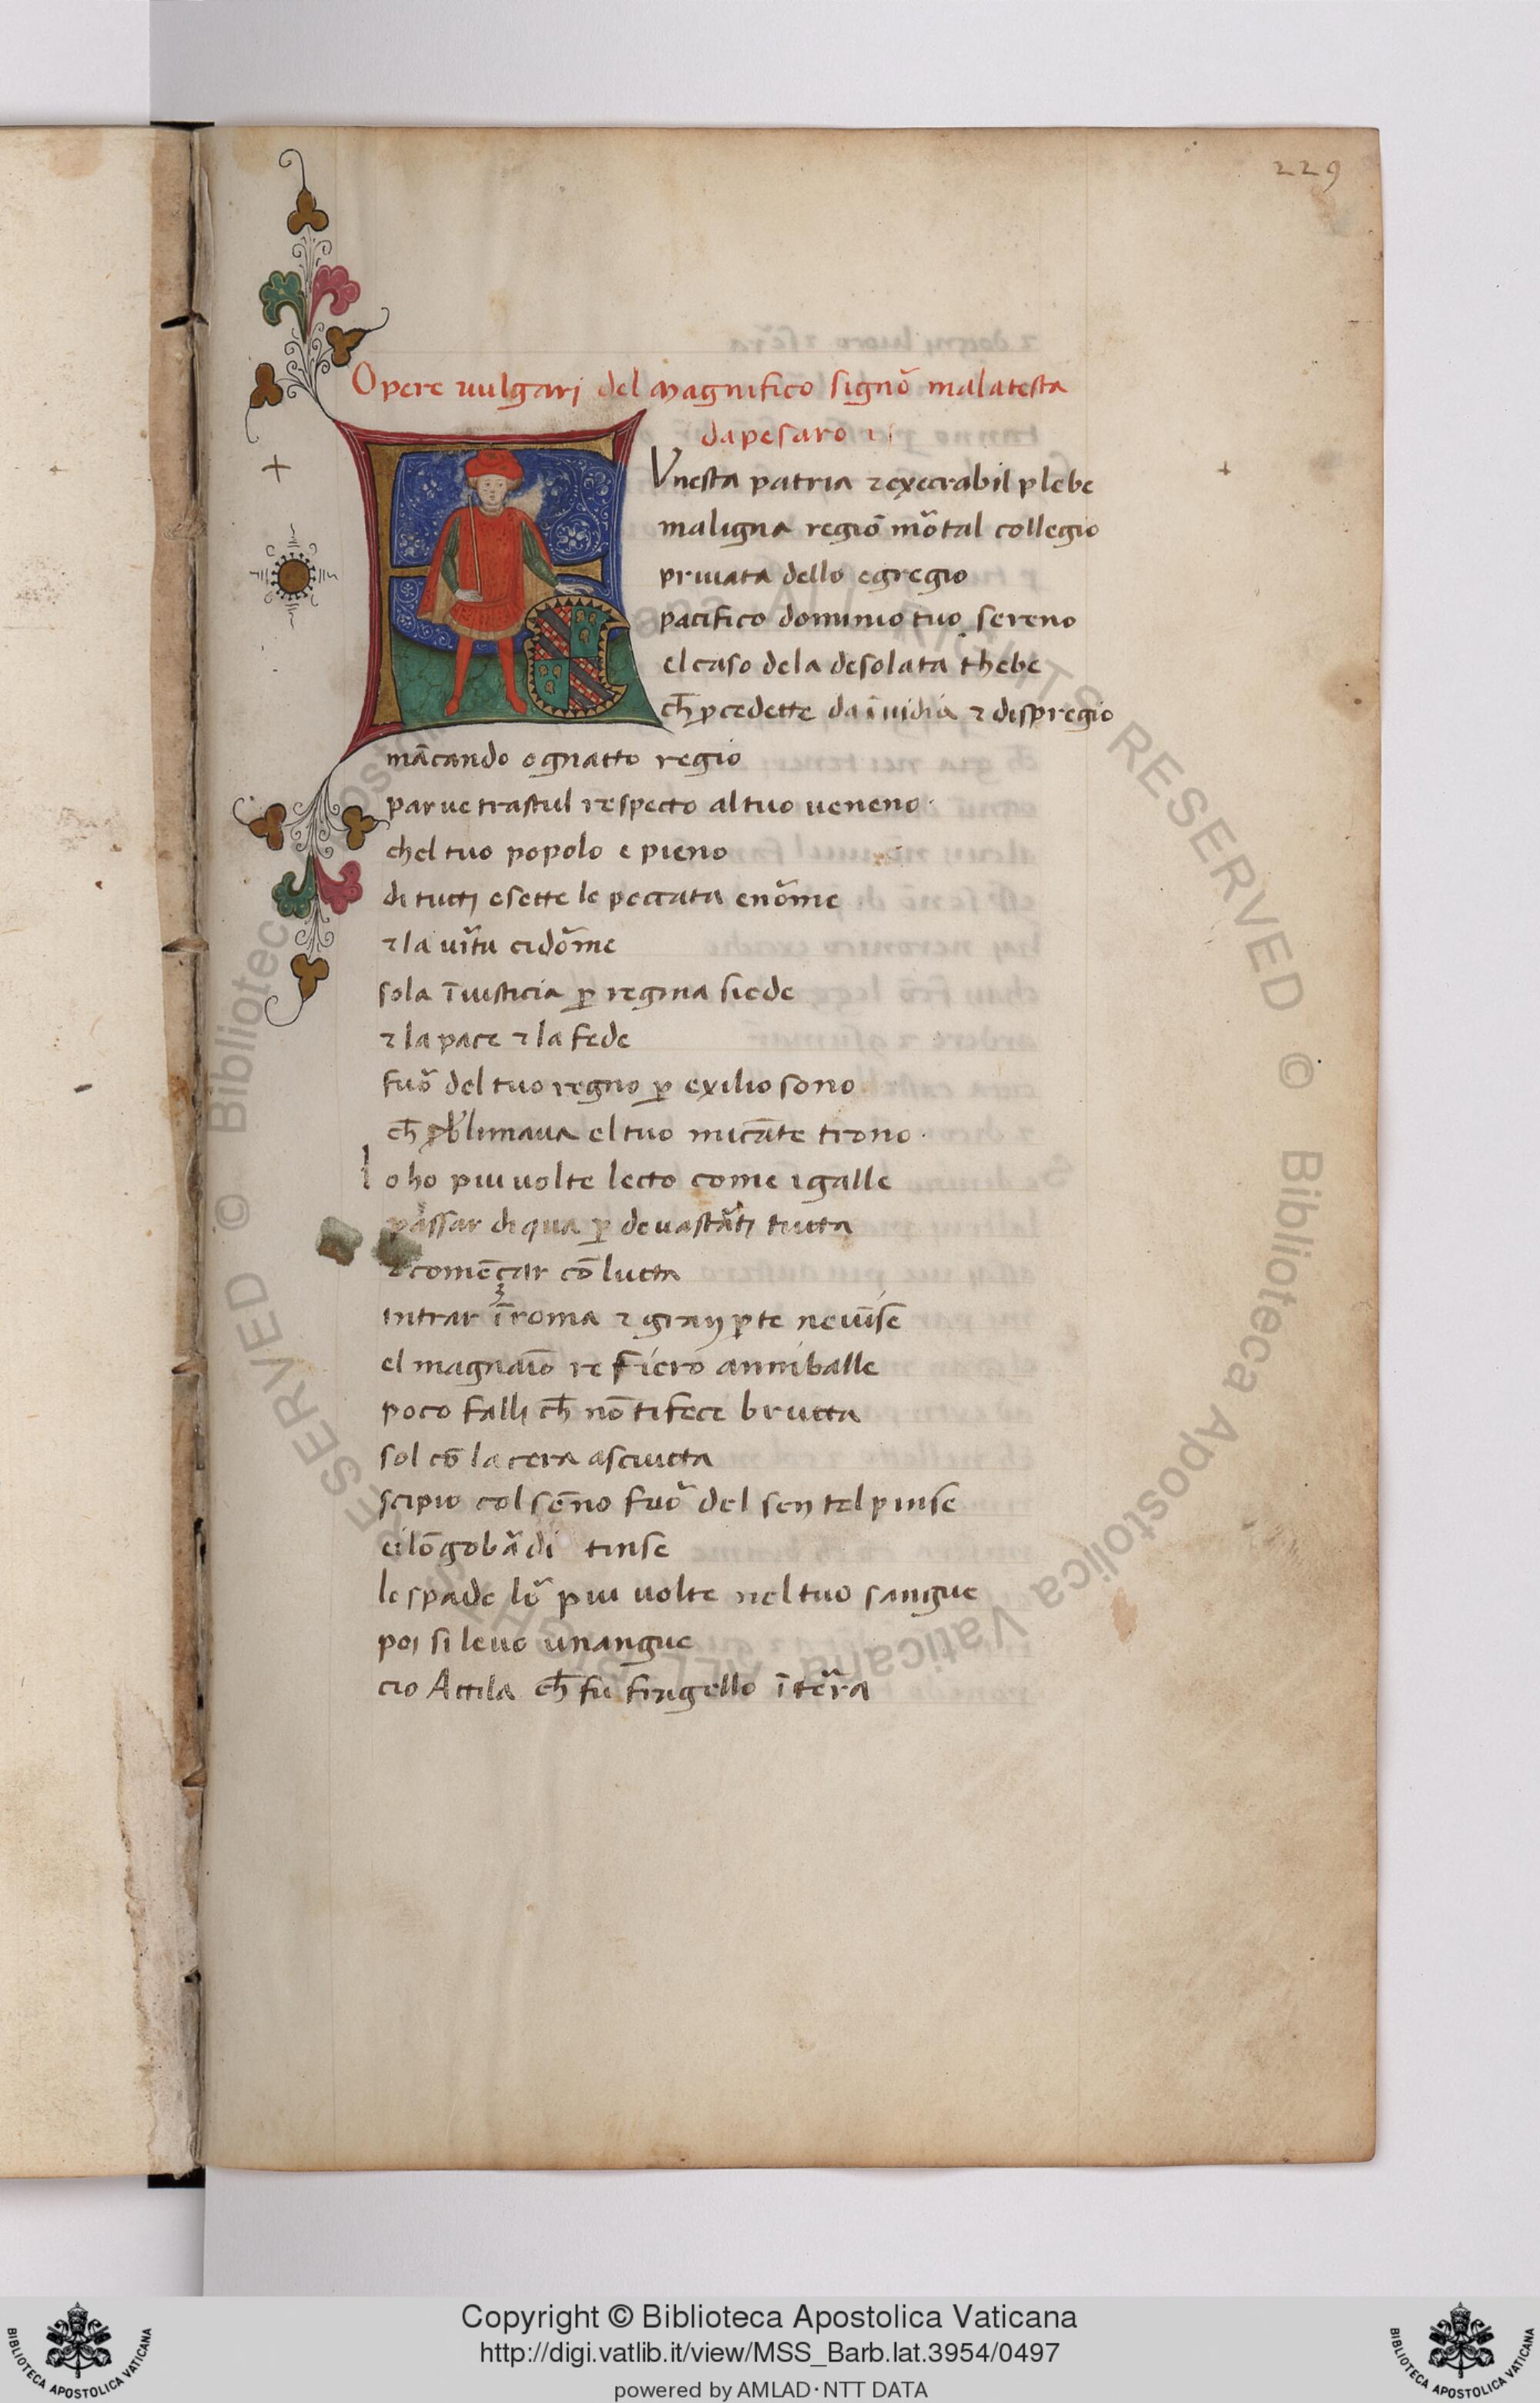 229
Opere uulgarj del magnifico signō malatesta
da pesaro
Vnesta patria ⁊ execrabil plebe
maligna regiō mōtal collegio
priuata dello egregio
pacifico dominio tuo sereno
el caso dela desolata thebe
ch̄ ꝓcedette da īuidia ⁊ dispregio
mācando ognatto regio
parue trastul respecto al tuo ueneno·
chel tuo popolo e pieno
di tuttj e sette le peccata enōme
⁊ la uītu cidōme
sola īiusticia ꝑ regina siede
⁊ la pace ⁊ la fede
fuō del tuo regno ꝑ exilio sono
ch̄ limaua el tuo micāte trono·
Io ho piu uolte lecto come i galle
passar di qua ꝑ deuastātj tutta
⁊ comēçar cō lutta
intrar ī roma ⁊ gran ꝑte ne uīse
el magnaīo re fiero anniballe
poco fallj ch̄ nō ti fece brutta
sol cō la cera asciutta
scipio col sēno fuō del sen tel pinse
ei lōgobādi tinse
le spade lō piu uolte nel tuo sangue
poj si leuo unangue
cio Attila ch̄ fu fragello ī tēra
Copyright © Biblioteca Apostolica Vaticana
http://digi.vatlib.it/view/MSS_Barb.lat.3954/0497
powered by AMLAD·NTT DATA
BIBLIOTECA APOSTOLICA VATICANA
BIBLIOTECA APOSTOLICA VATICANA